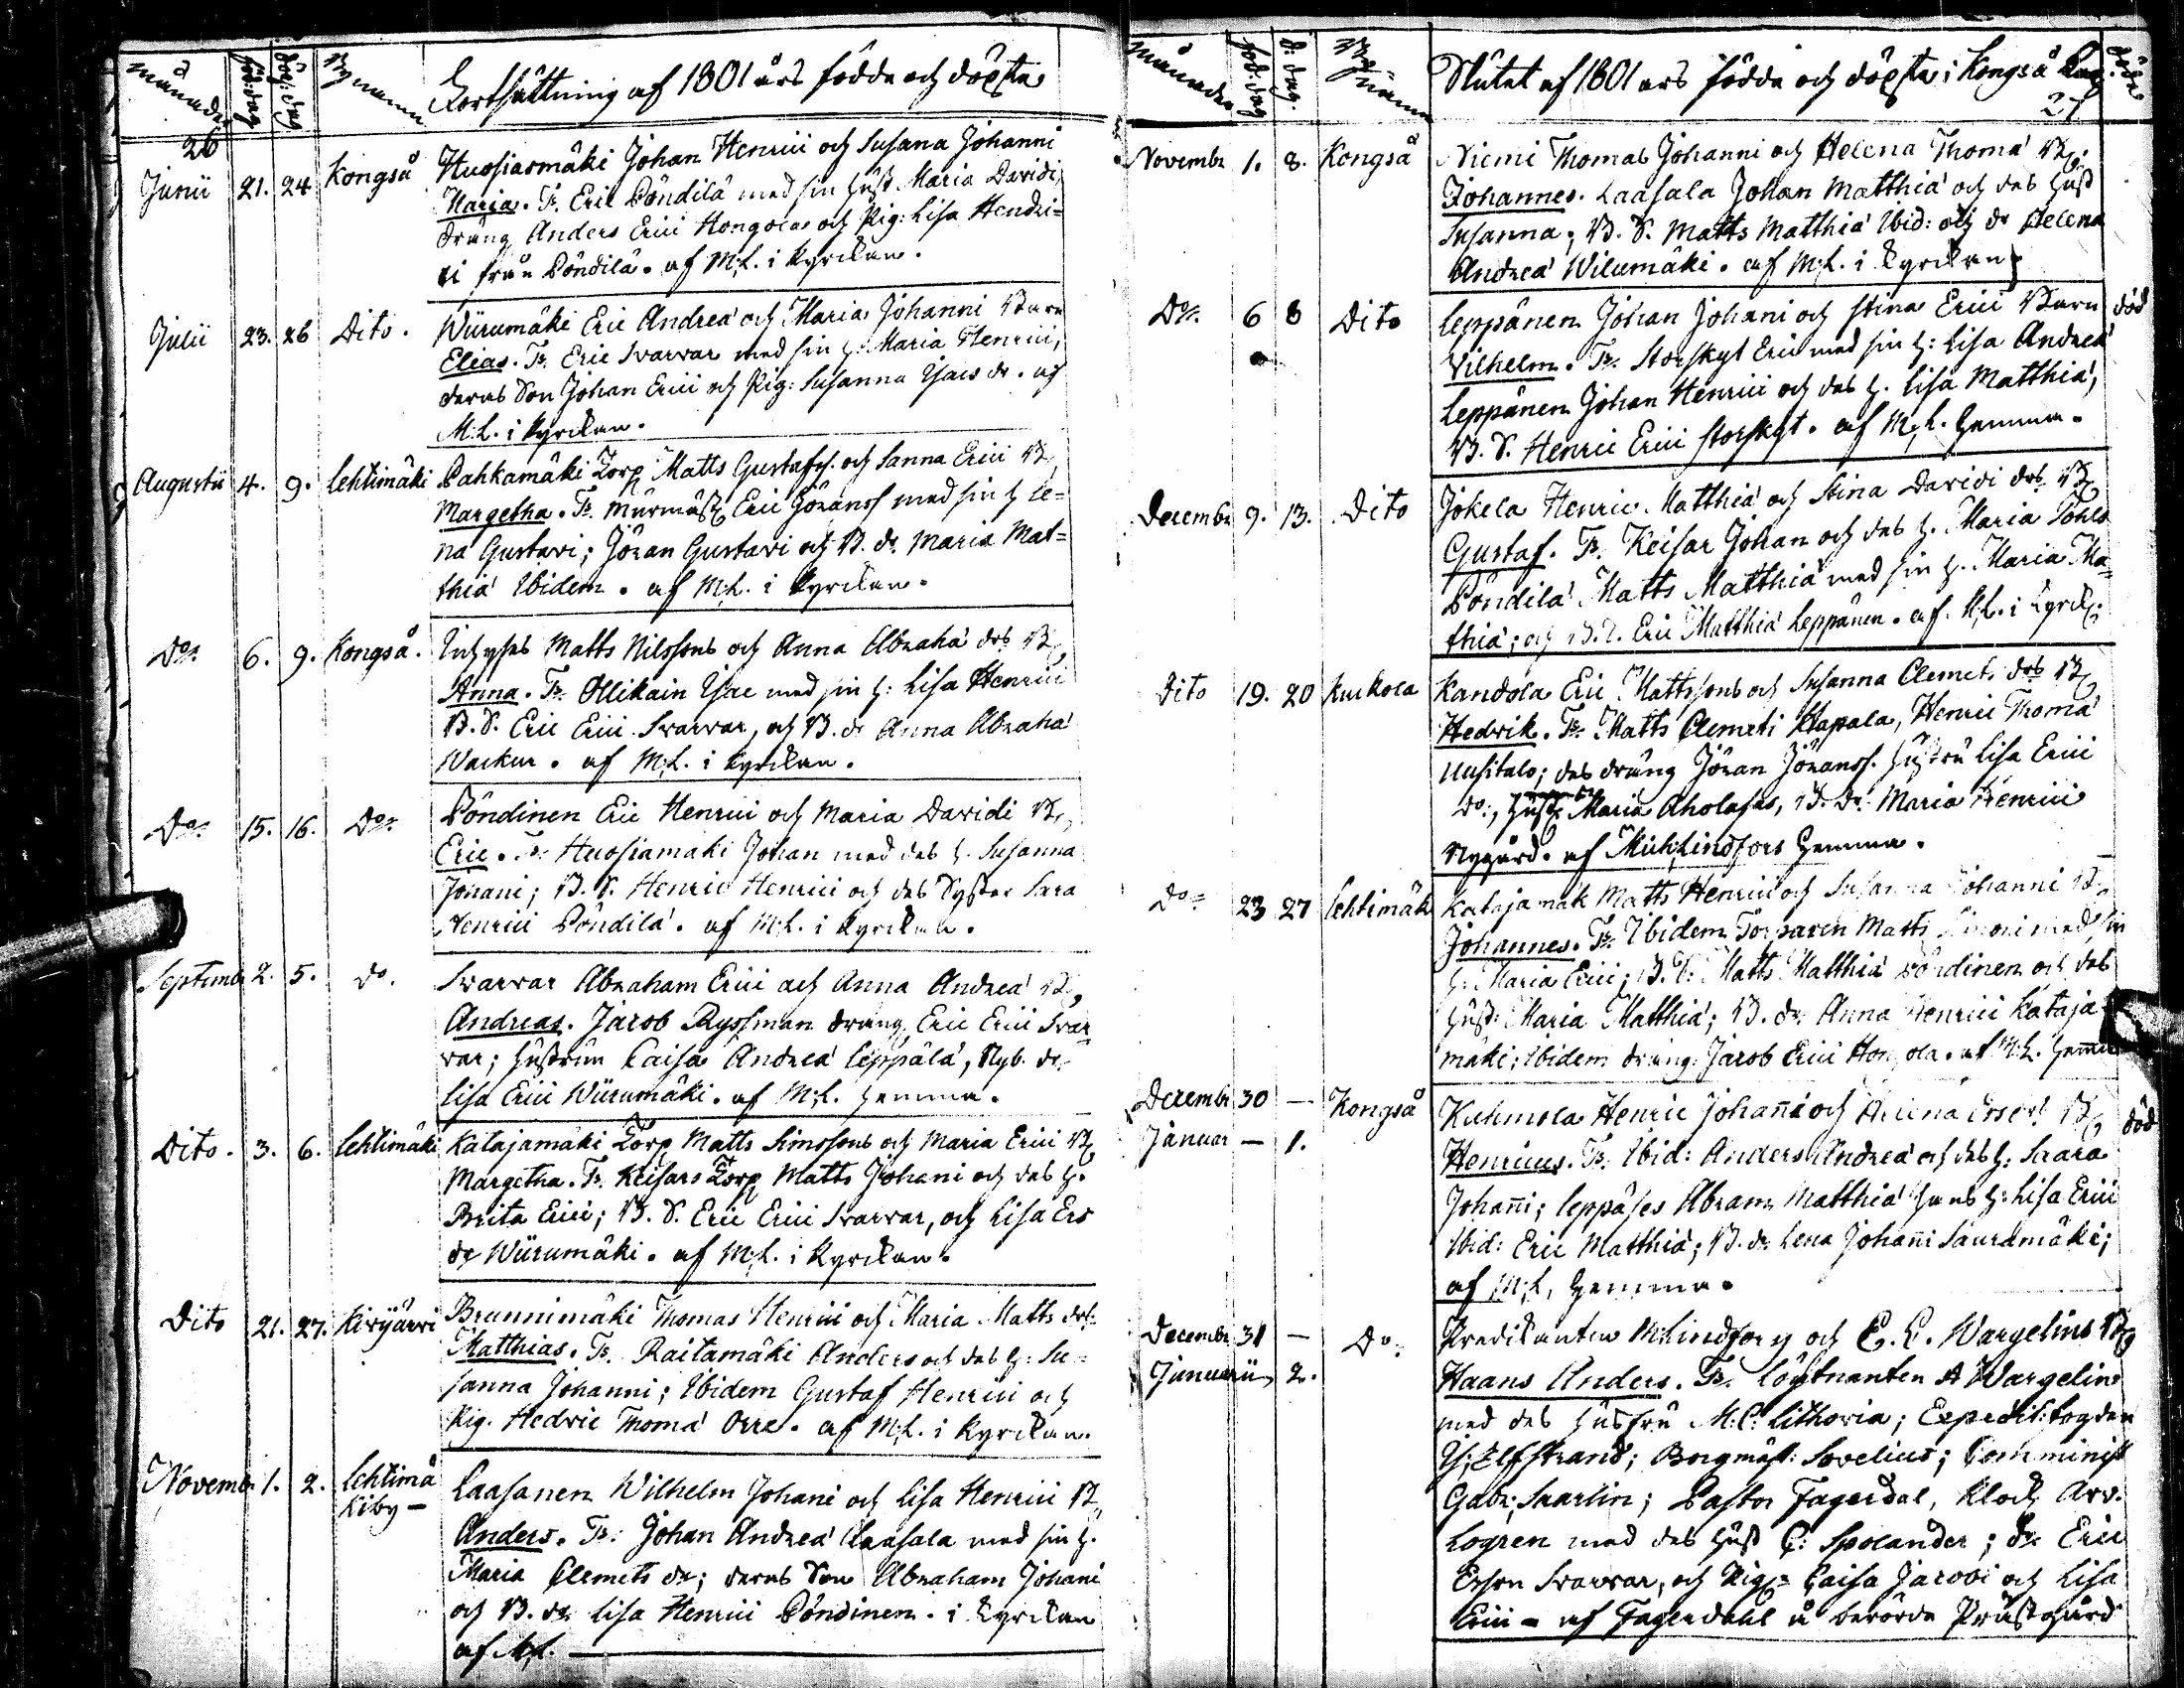 månader föd: dag döp: dag Bynamn Fortsättning af 1801 års födde och döpte
26
Junii 21. 24 Kongså Huosiarmäki Johan Henrici och Susana Johanni
Maria. Tr. Eric Pöndilä med sin hust. Maria Davidi,
dräng Anders Erici Hongola och Pig: Lisa Hendri=
ci från Pöndilä. af M:L. i kyrckan.
Julii 23. 26 Dito. Wiirumäki Eric Andreæ och Maria Johanni Barn
Elias. Tr. Eric Svarvar med sin h: Maria Henrici,
deras Son Johan Erici och Pig: Susanna Isacs dr. af
M:L. i kyrckan.
Augusti 4. 9. Lehtimäki Pahkamäki Torp. Matts Gustafss. och Sanna Erici B.
Margetha. Tr. Murmäst. Eric Göranss med sin h Le=
na Gustavi; Jöran Gustavi och B. dr. Maria Mat=
thiæ Ibidem. af M:L. i kyrckan.
Do. 6. 9. Kongså. Inhyses Matts Nilssons och Anna Abraha drs B.
Anna. Tr. Ollikain Isac med sin h: Lisa Henrici
B. S. Eric Erici Svarvar, och B. dr Anna Abraha
Wackur. af M:L. i kyrckan.
Do. 15. 16. Do. Pöndinen Eric Henrici och Maria Davidi B.
Eric. Tr. Huosiamaki Johan med des h. Susanna
Johani; B. S. Henric Henrici och des Syster Sara
Henrici Pöndilä. af M:L. i kyrckan.
Septemb 2. 5. do. Svarvar Abraham Erici och Anna Andreæ B.
Andreas. Jacob Ryssman dräng, Eric Erici Svar
var; hustrun Caisa Andreæ Leppälä, Nyb. dr
Lisa Erici Wiirumäki. af M:L. hemma.
Dito. 3. 6. Lehtimäki Katajamäki Torp Matts Simssons och Maria Erici B.
Margetha. Tr. Keisars Torp Matts Johani och des h.
Brita Erici; B. S. Eric Erici Svarvar, och Lisa Ers
dr Wiirumäki. af M:L. i kyrckan.
Dito 21. 27. Kivijärvi Brunnimäki Thomas Henrici och Maria Matts drs
Matthias. Tr. Raitamäki Anders och des h: Su=
sanna Johanni; Ibidem Gustaf Henrici och
Pig. Hedvic Thomæ Orre. af M:L. i kyrckan.
Novemb 1. 2. Lehtimä
kiby - Laasanen Wilhelm Johani och Lisa Henrici B.
Anders. Tr: Johan Andreæ Laasala med sin h.
Maria Clemets dr; deras Son Abraham Johani
och B. dr Lisa Henrici Pöndinen. i kyrckan
af M:L.
månader föd. dag d: dag. By namn Slutet af 1801 ars födde och döpte i Kongså Cap. döde
27
Novembr 1. 8. Kongså Niemi Thomas Johanni och Helena Thomæ B.
Johannes. Laasala Johan Matthiæ och des hust
Susanna; B. S. Matts Matthiæ Ibid: och dr Helena
Andreæ Wilumäki. af M:L. i kyrckan
Do. 6 8 Dito Leppänen Johan Johani och Stina Erici Barn död
Vilhelm. Tr. Storskyt Eric med sin h: Lisa Andreæ
Leppänen Johan Henrici och des h. Lisa Matthiæ,
B. S. Henric Erici Storskyt. af M:L. hemma.
Decembr 9. 13. Dito Jokela Henric Matthiæ och Stina Davidi drs B.
Gustaf. Tr. Keisar Johan och des h. Maria Pohls
Pöndilä Matts Matthiæ med sin h. Maria Ma=
thiæ; och B. S. Eric Matthiæ Leppänen. af M:L. i kyrck.
Dito 19. 20 Kurkola Kandola Eric Mattssons och Susanna Clemets drs B.
Hedvik. Tr. Matts Clemeti Hapala, Henric Thomæ
Uusitalo; des dräng Jöran Jöranss. hustru Lisa Erici
do., hust. Maria Aholasas, B. Dr. Maria Henrici
Nygård. af Mich: Lindfors hemma.
Do 23 27 Lehtimäk Katajamäk Matts Henrici och Susanna Johanni B.
Johannes. Tr. Ibidem Torparen Matts Simoni med sin
h. Maria Erici; B. S. Matts Matthiæ Pöndinen och des
hust: Maria Matthiæ; B. dr. Anna Henrici Kataja
mäki; Ibidem dräng: Jacob Erici Hongola. af M:L. hemma
Decembr 30 — Kongså Kuhmola Henric Johanni och Helena Ers dr B. död
Januar — 1. Henricus. Tr. Ibid: Anders Andreæ och des h: Saara
Johanni; Leppäses Abram Matthiæ hans h: Lisa Erici
Ibid: Eric Matthiæ; B. dr. Lena Johanni Sauramäki;
af M:L, hemma.
Decembr 31 — Do. Predikanten M:Lindfors och C. C. Wargelins B.
Januarii 2. Haans Anders. Tr. Löjtnanten A Wargelin
med des husfru M:C: Lithovia; Expedit: fogden
Is; Elfstrand; Borgmäst: Sovelius; Comminist
Gabr; Saarlin; Pastor Fagerdal, Klock Arv.
Logren med des hust C: Spolander; dr. Eric
Erson Svarvar, och Pig. Caisa Jacobi och Lisa
Erici - af Fagerdahl å berörde Prästgård